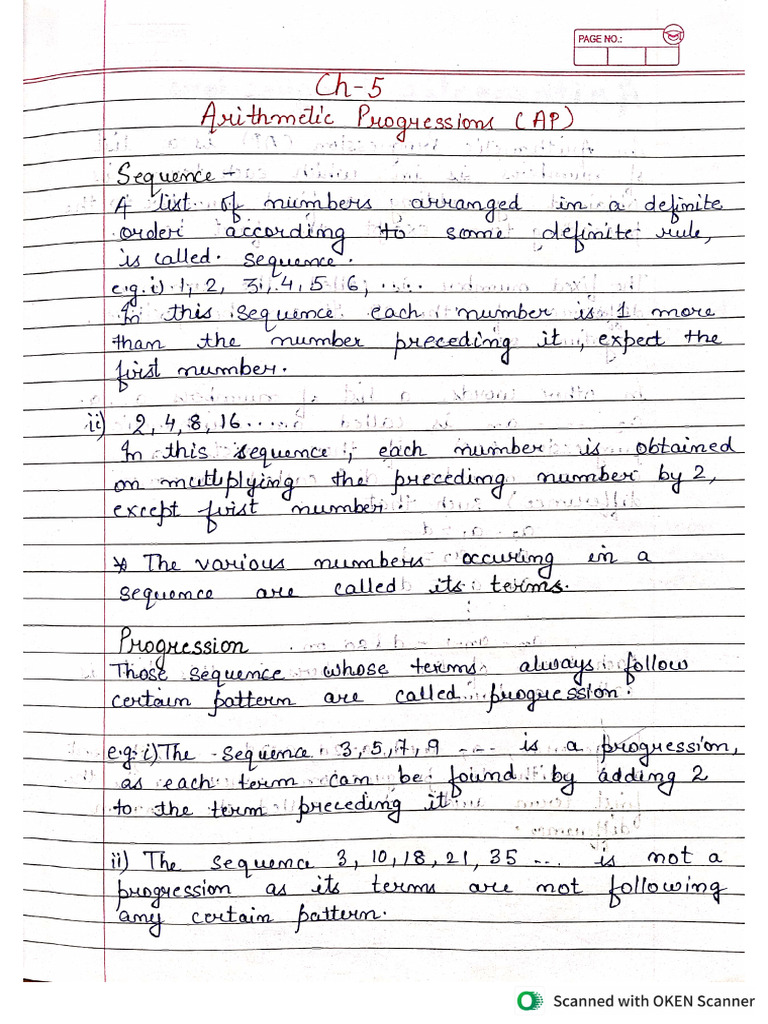 PAGE NO.:
Ch-5
Arithmetic Progressions (AP)
Sequence -
A list of numbers arranged in a definite
order according to some definite rule,
is called sequence.
e.g. i) 1, 2, 3, 4, 5 6, ....
In this sequence each number is 1 more
than the number preceding it, expect the
first number.
ii) 2, 4, 8, 16.....
In this sequence, each number is obtained
on multiplying the preceding number by 2,
except first number.
* The various numbers occuring in a
sequence are called its terms.
Progression
Those sequence whose terms always follow
certain pattern are called progression.
e.g. i) The sequence 3, 5, 7, 9 .... is a progression,
as each term can be found by adding 2
to the term preceding it
ii) The sequence 3, 10, 18, 21, 35 ... is not a
progression as its terms are not following
any certain pattern.
Scanned with OKEN Scanner